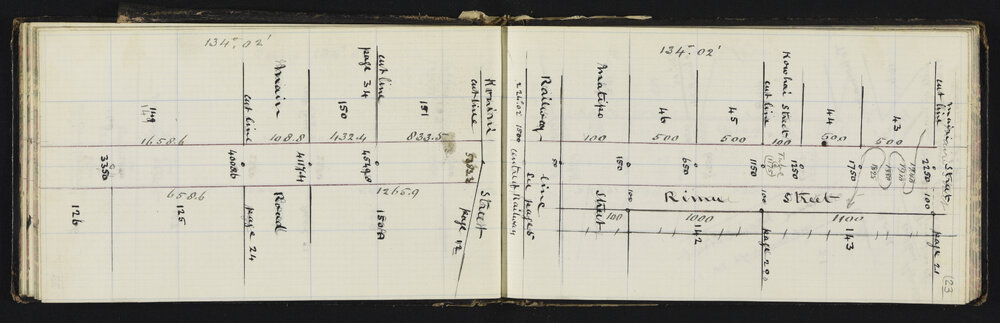 134° 02'
149
1658.6
3350
658.6
125
126
Amain
cut line
108.8
4008.6
4117.4
Road
page 24
150
432.4
cut line
page 34
151
833.5
4549.8
1265.9
150A
Konini
cut line
Street
page 12
134° 02'
Railway
line
See page 5
centre Railway
50
Matipo
100
150
Street
100
46
500
650
45
500
1150
Kowhai Street
cut line
100
Tube
1250
44
500
1750
43
500
1825
1880
1910
1948
2250
100
Street
cut line
page 21
Rimu Street
1000
142
100
page 20
1100
143
23